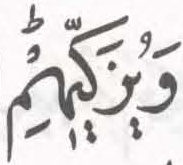 وَيُزَكِّيْهِمْؕ